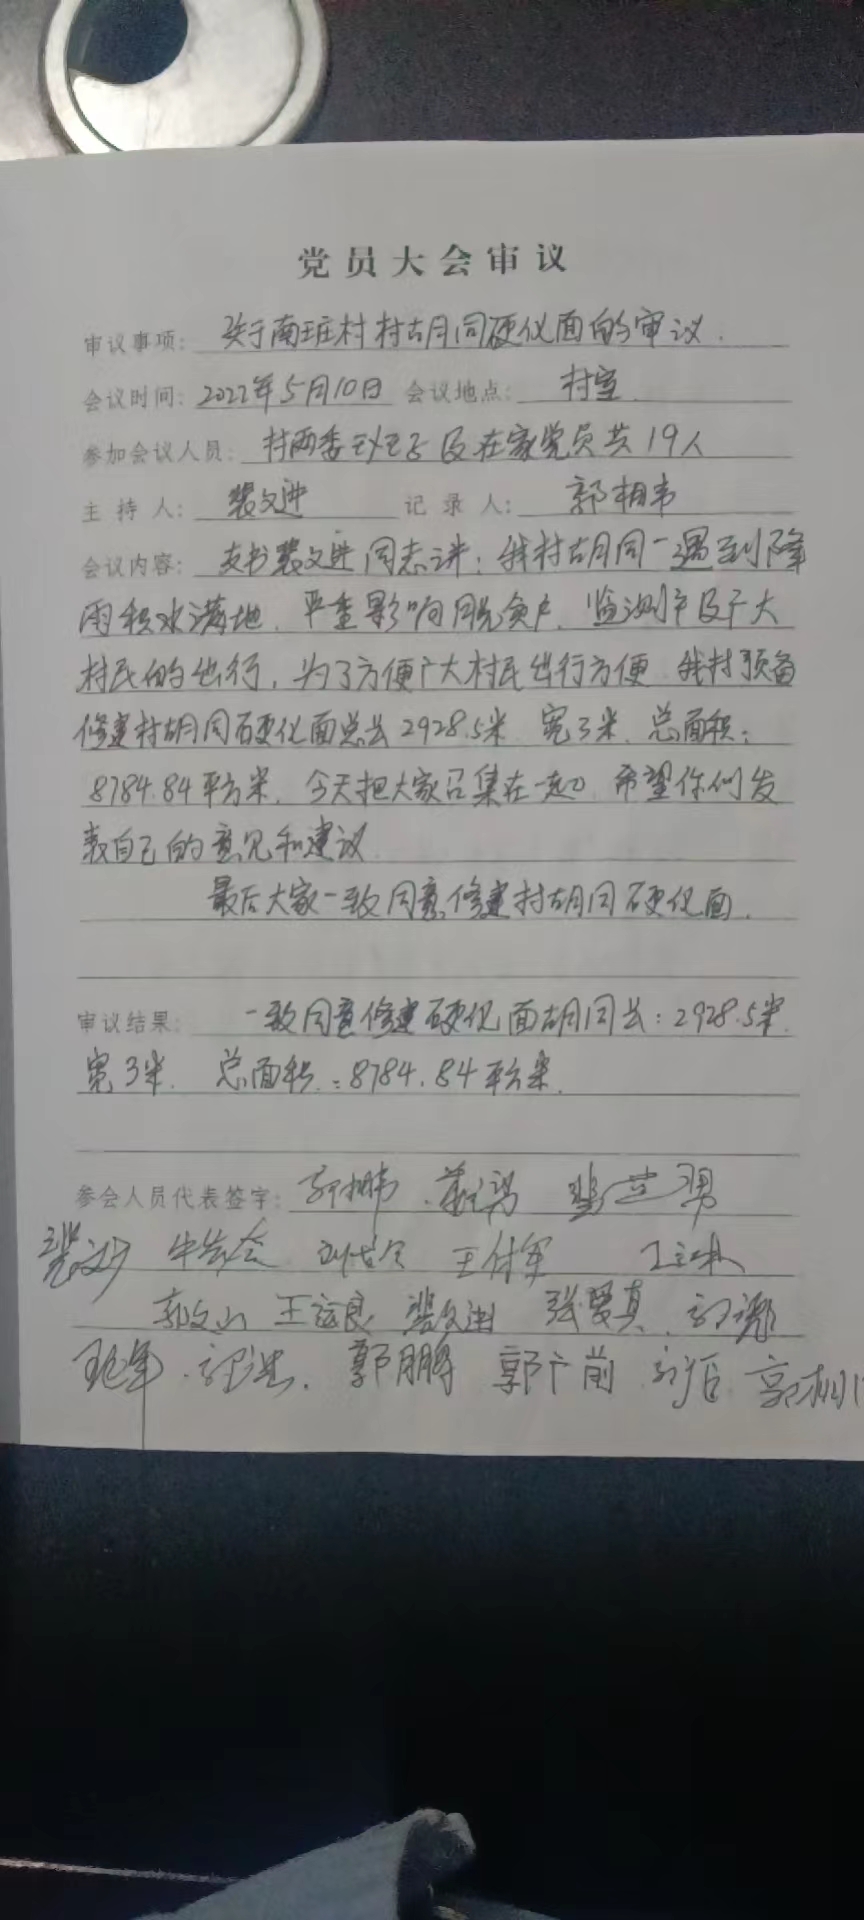 党员大会审议
审议事项: 关于南班村村胡同硬化面的审议.
会议时间: 2022年5月10日 会议地点: 村室
参加会议人员: 村两委班子及在家党员共19人
主持人: 裴文进 记录人: 郭相韦
会议内容: 支书裴文进同志讲:我村胡同一遇到降
雨积水满地.严重影响脱贫户.监测户及广大
村民的出行,为了方便广大村民出行方便.我村预备
修建村胡同硬化面总长2928.5米.宽3米.总面积:
8784.84平方米.今天把大家召集在一起.希望你们发
表自己的意见和建议.
最后大家一致同意修建村胡同硬化面.
审议结果: 一致同意修建硬化面胡同长:2928.5米.
宽3米. 总面积:8784.84平方米.
参会人员代表签字:
王付军
郭文山 王运良 裴文进 张爱真
郭鹏 郭广前